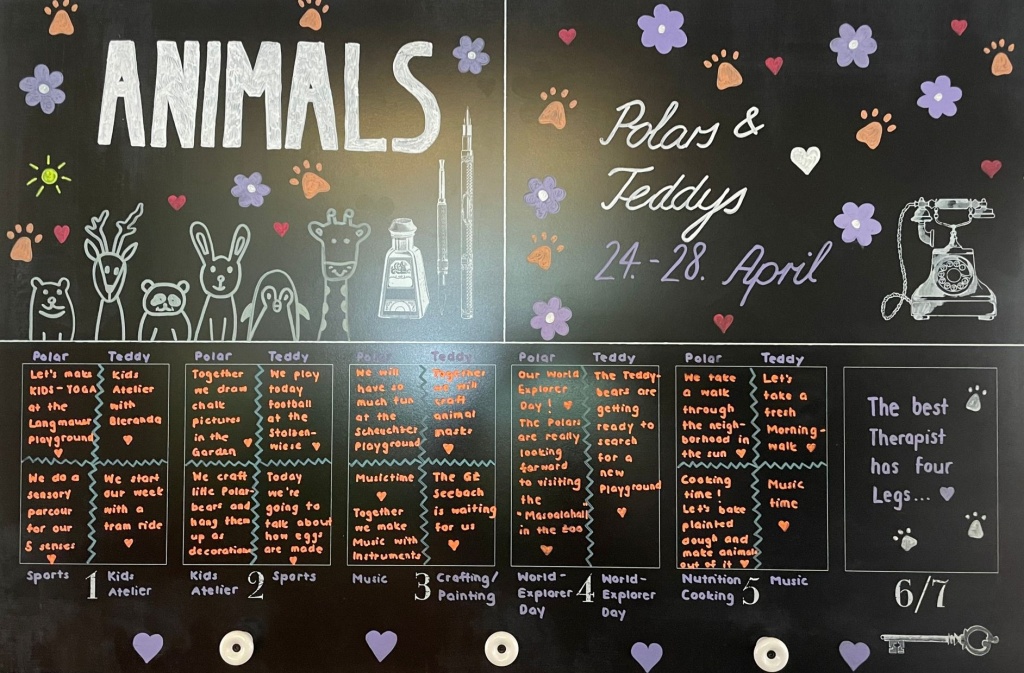 ANIMALS
Polars &
Teddys
24.-28. April
Polar
Teddy
Let's make
KIDS-YOGA
at the
Langmauer
Playground
Kids
Atelier
with
Aleranda
We do a
sensory
parcour
for our
5 senses
We start
our week
with a
tram ride
Sports
1
Kids
Atelier
Polar
Teddy
Together
we draw
chalk
pictures
in the
Garden
We play
today
football
at the
Stolzen-
wiese
We craft
litle Polar-
bears and
hang them
up as
decoration
Today
we're
going to
talk about
how eggs
are made
Kids
Atelier
2
Sports
Polar
Teddy
We will
have so
much fun
at the
Scheuchzer
Playground
Together
we will
craft
animal
masks
Musictime
Together
we make
Music with
Instruments
The GZ
Seebach
is waiting
for us
Music
3
Crafting/
Painting
Polar
Teddy
Our World
Explorer
Day!
The Polars
are really
looking
forward
to visiting
the
"Masoalahall"
in the Zoo
The Teddy-
bears are
getting
ready to
search
for a
new
Playground
World-
Explorer
Day
4
World-
Explorer
Day
Polar
Teddy
We take
a walk
through
the neigh-
borhood in
the sun
Let's
take a
fresh
Morning-
walk
Cooking
time!
Let's bake
plainted
dough and
make animals
out of it
Music
time
Nutrition
Cooking
5
Music
The best
Therapist
has four
Legs...
6/7